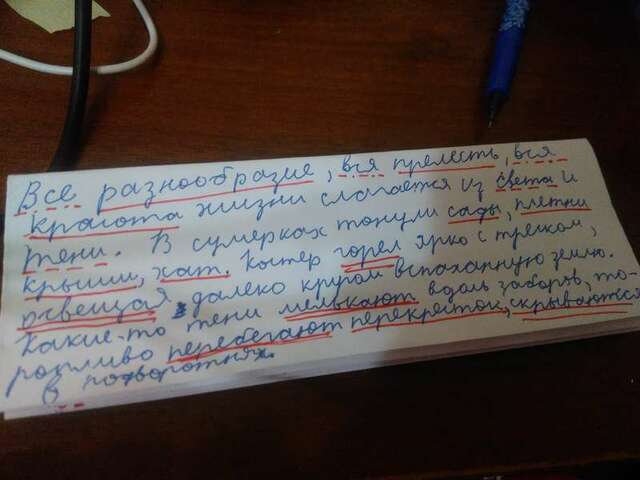 Все разнообразие, вся прелесть, вся
красота жизни слагается из света и
тени. В сумерках тонули сады, плетни
крыши, хат. Костер горел ярко с треском,
освещая далеко кругом вспаханную землю.
Какие-то тени мелькают вдоль заборов, то-
ропливо перебегают перекресток, скрываются
в подворотнях.